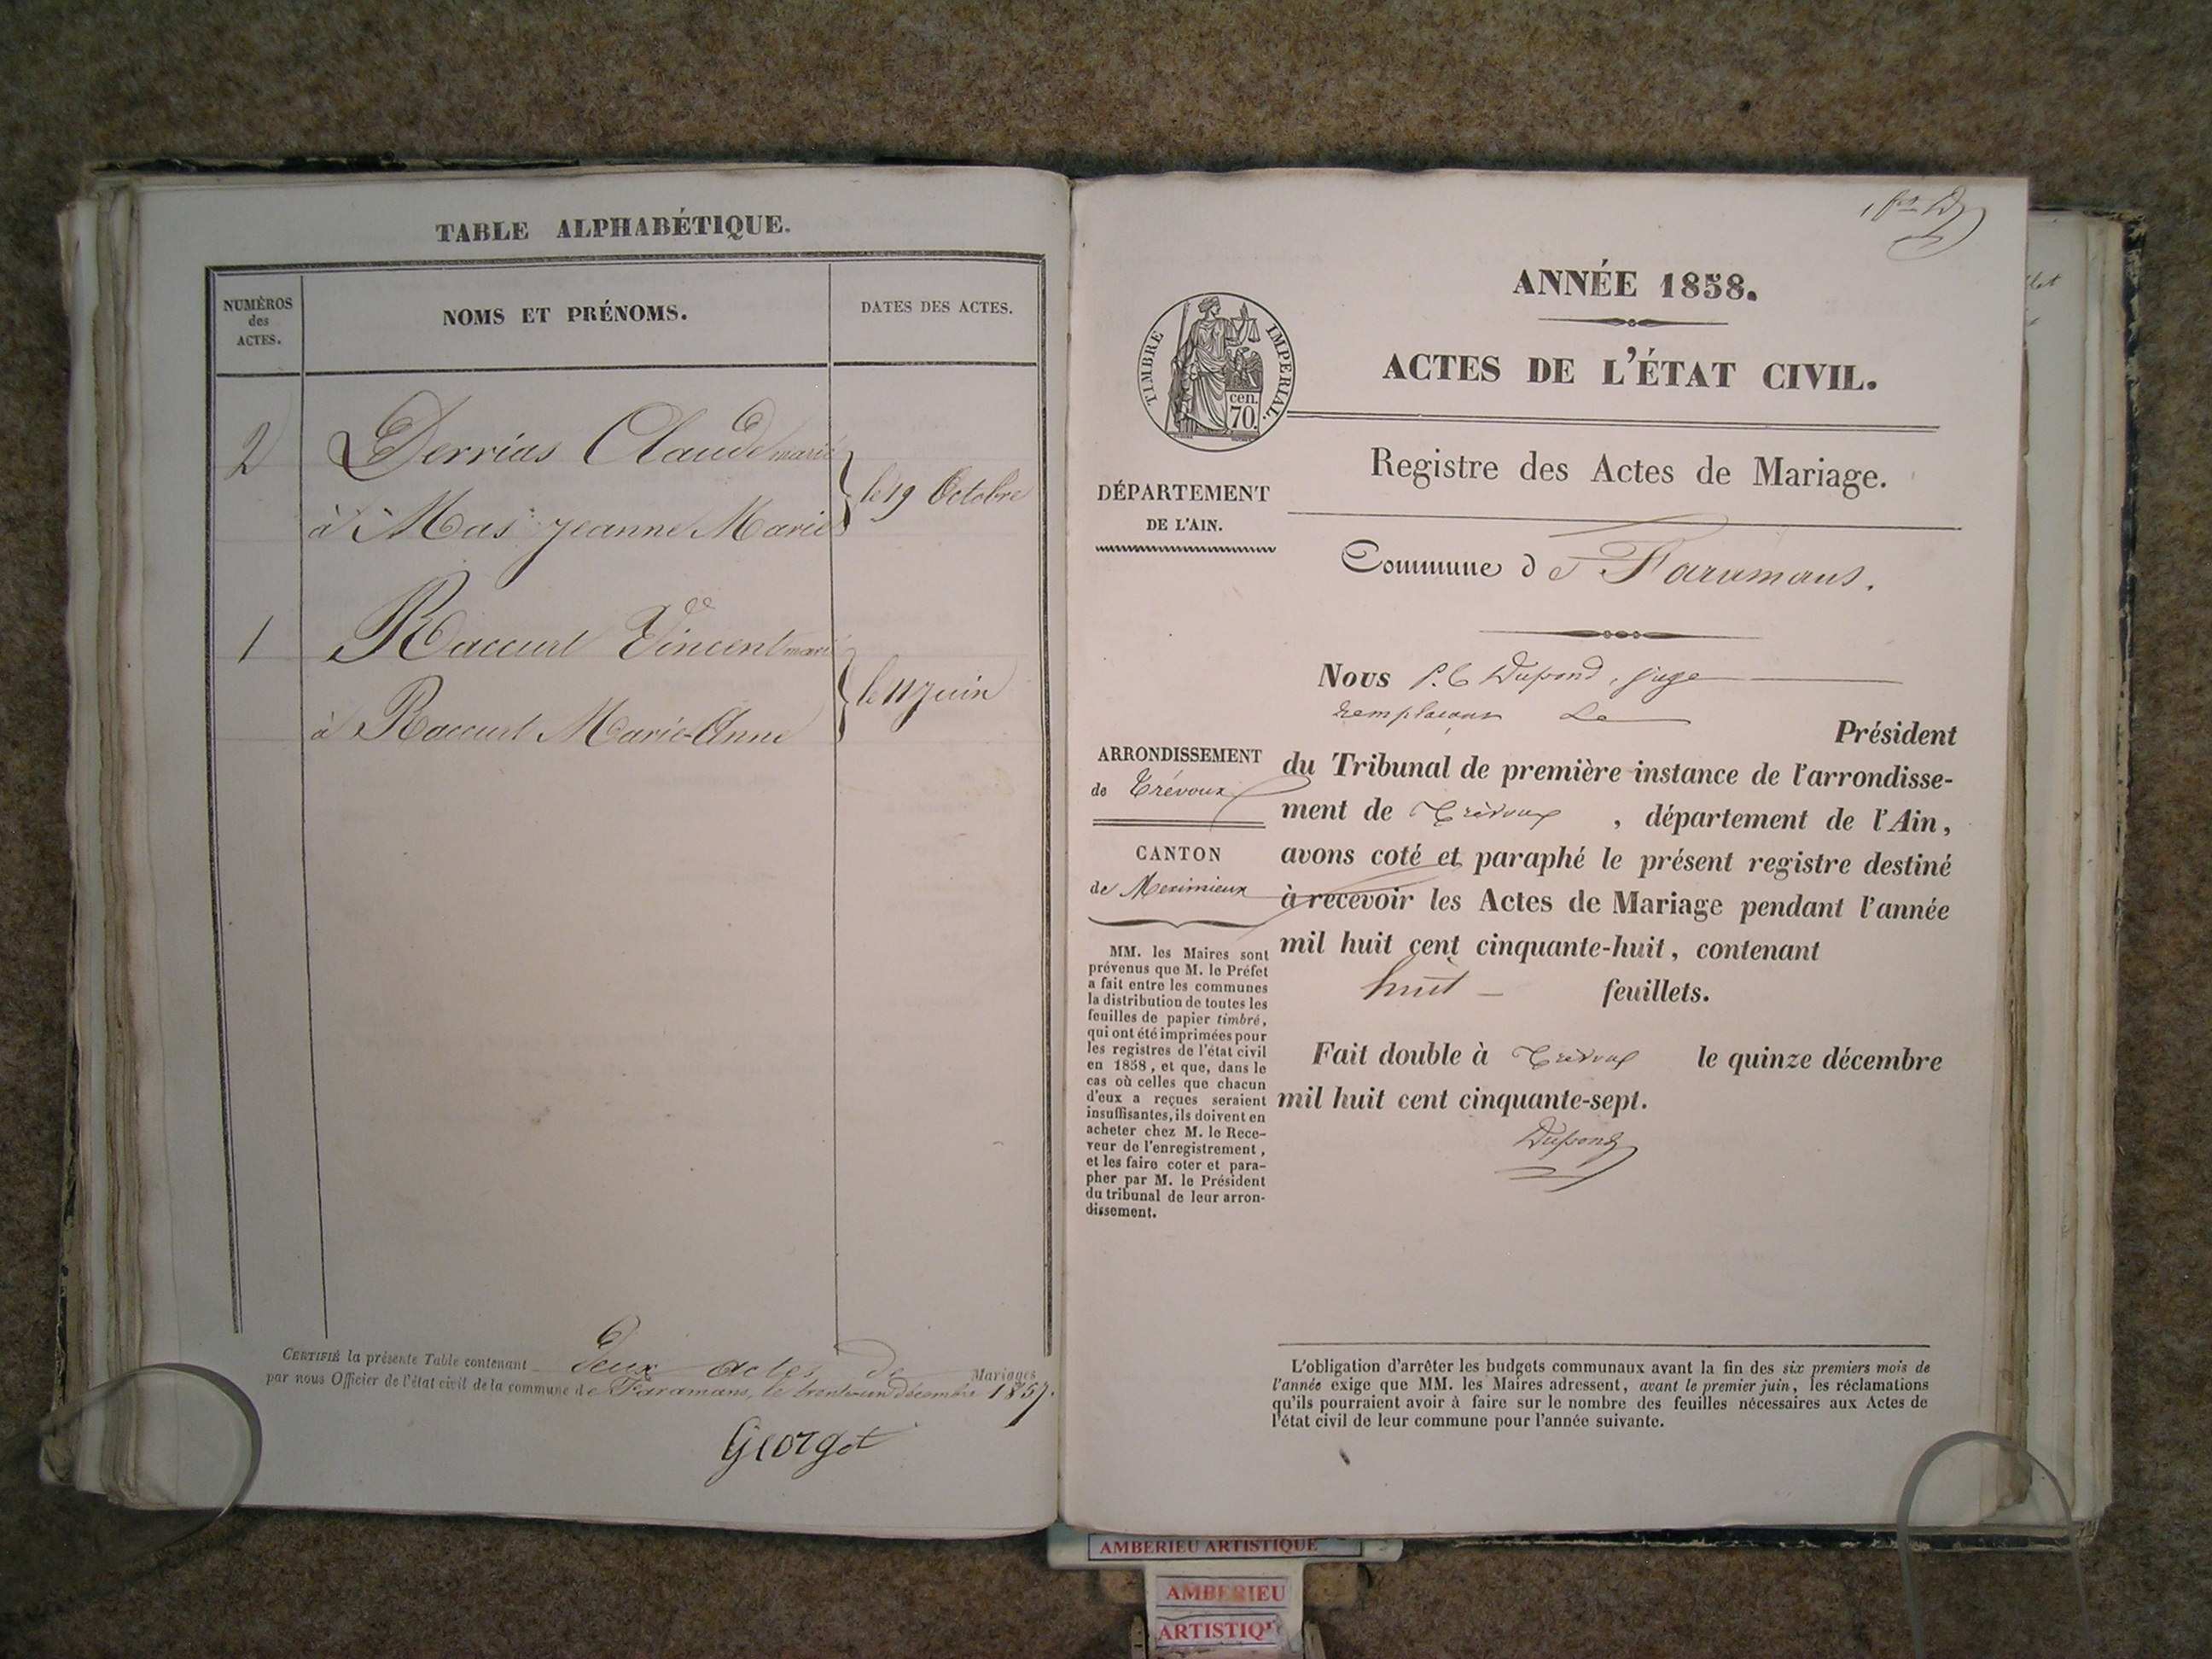 TABLE ALPHABÉTIQUE.
NUMÉROS
des
ACTES.
NOMS ET PRÉNOMS.
DATES DES ACTES.
2
Derrias Claude marié
à Mas Jeanne Marie
le 19 Octobre
1
Raccurt Vincent marié
à Raccurt Marie-Anne
le 11 Juin
CERTIFIÉ la présente Table contenant Deux actes de Mariages
par nous Officier de l'état civil de la commune de Faramans, le trente un décembre 1857.
Georget
ANNÉE 1858.
ACTES DE L'ÉTAT CIVIL.
TIMBRE IMPERIAL.
cen.
70.
Registre des Actes de Mariage.
DÉPARTEMENT
DE L'AIN.
Commune de Faramans.
Nous P. C Dupond, juge
remplaçant Le
Président
ARRONDISSEMENT
de Trévoux
du Tribunal de première instance de l'arrondisse-
ment de Trévoux, département de l'Ain,
CANTON
de Meximieux
avons coté et paraphé le présent registre destiné
à recevoir les Actes de Mariage pendant l'année
mil huit cent cinquante-huit, contenant
huit feuillets.
Fait double à Trévoux le quinze décembre
mil huit cent cinquante-sept.
Dupond
MM. les Maires sont
prévenus que M. le Préfet
a fait entre les communes
la distribution de toutes les
feuilles de papier timbré,
qui ont été imprimées pour
les registres de l'état civil
en 1858, et que, dans le
cas où celles que chacun
d'eux a reçues seraient
insuffisantes, ils doivent en
acheter chez M. le Rece-
veur de l'enregistrement,
et les faire coter et para-
pher par M. le Président
du tribunal de leur arron-
dissement.
L'obligation d'arrêter les budgets communaux avant la fin des six premiers mois de
l'année exige que MM. les Maires adressent, avant le premier juin, les réclamations
qu'ils pourraient avoir à faire sur le nombre des feuilles nécessaires aux Actes de
l'état civil de leur commune pour l'année suivante.
AMBERIEU ARTISTIQUE
AMBERIEU
ARTISTIQ